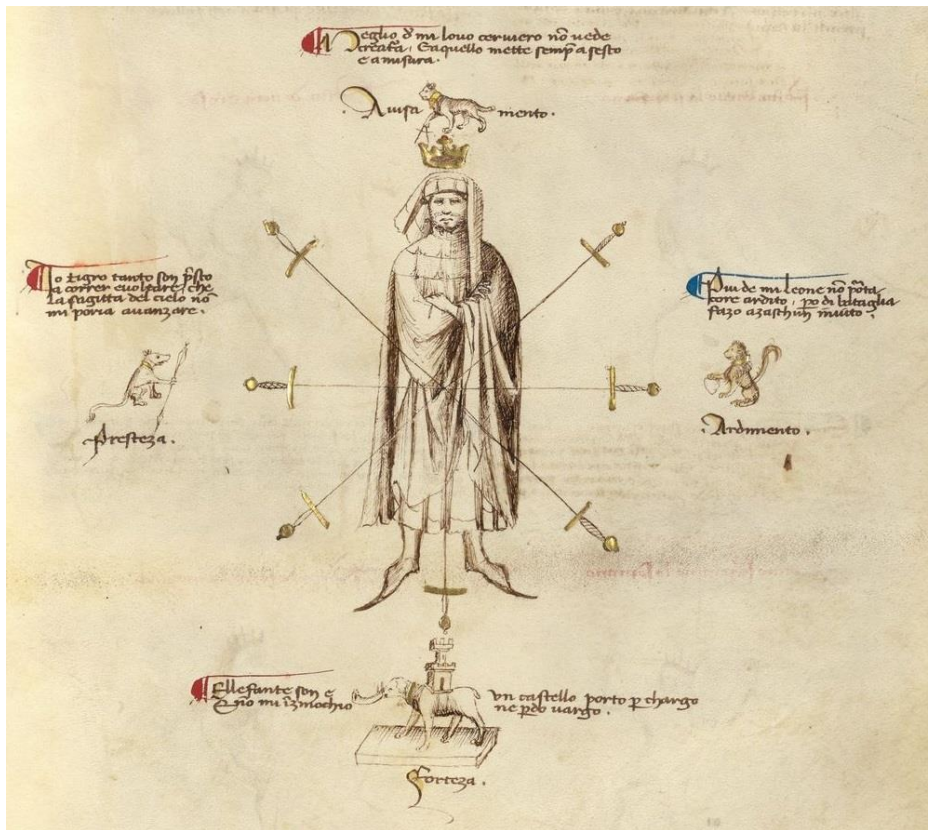 Meglio de mi lovo cerviero no vede
creatura. E aquello mette semp a sesto
e a misura.
Avisamento.
Io tigro tanto son psto
a correr e voltare, che
la sagitta del cielo no
mi poria avanzare.
Presteza.
Piu de mi leone no porta
core ardito, po di bataglia
fazo a zaschun invito.
Ardimento.
Ellefante son e
no mi
un castello porto p chargo
ne pdo vargo.
Forteza.